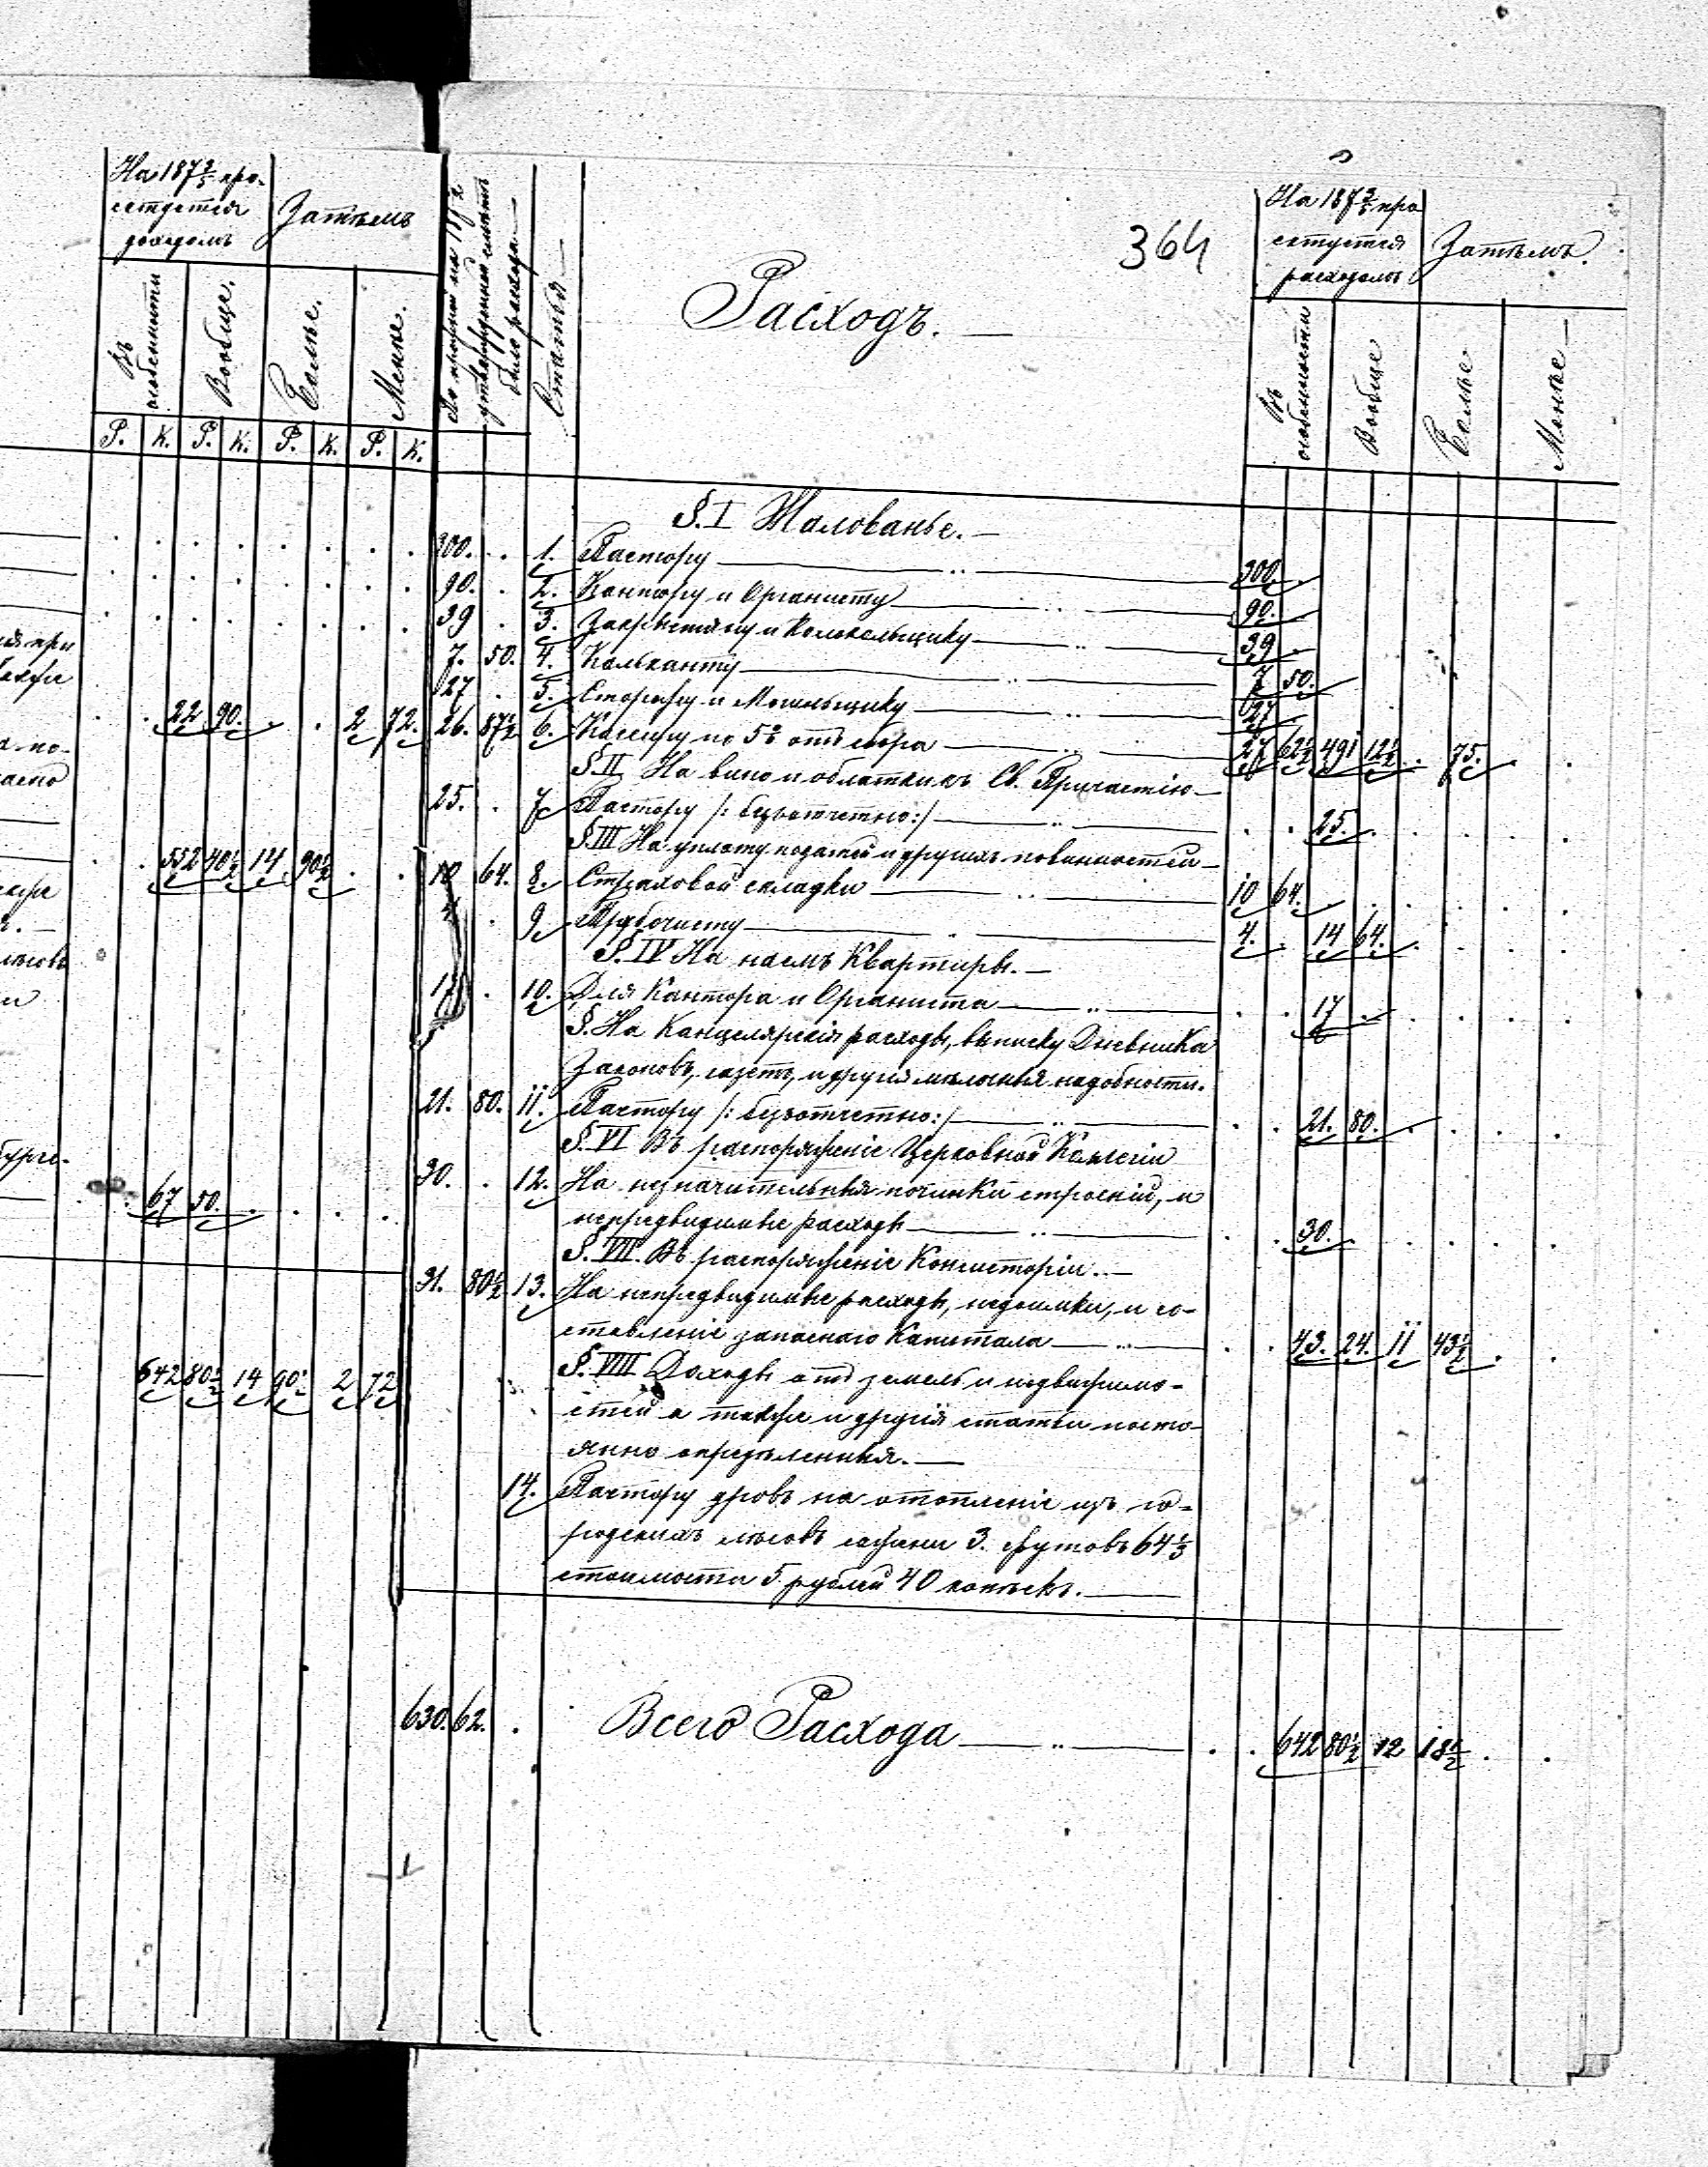 На 187 3/5 про-
ектуется
доходомъ
Затѣмъ
Въ особенности
Вообще.
Болѣе.
Менѣе.
Р. К. Р. К. Р. К. Р. К.
22 90. . . 2 72.
552 40½ 14. 90½ . .
67 50. . . . .
642 80½ 14 90½ 2 72
утвержденной смѣтѣ
было расхода
Статья
Расходъ.
364
На 187 3/5 про
ектуется
расходомъ
Затѣмъ.
Въ особенности
Вообще
Болѣе
Менѣе
§. I Жалованье.
300. . 1. Пастору 300. .
90. . 2. Кантору и Органисту 90. .
39 . 3. Закристяну и Колокольщику 39 .
7. 50. 4. Кальканту 7 50.
27 . 5. Сторожу и Могильщику 27 .
26. 87½ 6. Кассиру по 5% отъ сбора 27 62½ 491 12½ . 75. . .
§. II На вино и облатки къ Св. Причастію
25. . 7. Пастору /: безъотчетно:/ . . 25. . . . . .
§. III На уплату податей и другихъ повинностей
10 64. 8. Страховой складки 10 64. . . . . . .
4 . 9. Трубочисту 4. . 14 64. . . . .
§. IV На наемъ Квартиры.
17 . 10. Для Кантора и Органиста . . 17 . . . . .
§. На Канцелярскія расходы, выписку Дневника
Законовъ, газетъ, и другія мѣлочныя надобности.
21. 80. 11. Пастору /: безъотчетно:/ . . 21. 80. . . . .
§. VI Въ распоряженіе Церковной Коллегіи
30. . 12. На незначительныя починки строеній, и
непредвидимые расходы . . 30. . . . . .
§. VII. Въ распоряженіе Консисторіи.
31. 80½ 13. На непредвидимые расходы, недоимки, и со-
ставленіе запаснаго Капитала . . 43. 24. 11 43½ . .
§. VIII Доходы отъ земель и недвижимо-
стей а также и другія статьи посто-
янно опредѣленныя.
14. Пастору дровъ на отопленіе изъ го-
родскихъ лѣсовъ сажени 3. футовъ 64⅓
стоимости 5 рублей 40 копѣекъ.
630. 62. . Всего Расхода . . 642 80½ 12 18½ . .